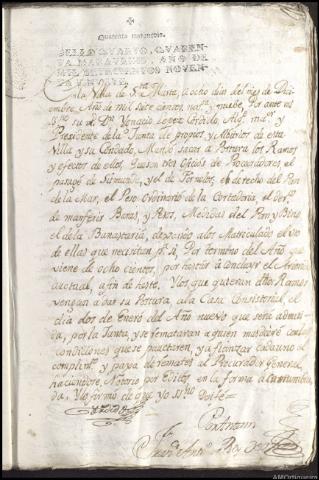 Quarenta maravedis.
SELLO QVARTO, QVAREN-
TA MARAVEDIS, AÑO DE
MIL SETECIENTOS NOVEN-
TA Y NUEVE.
la Villa de Sta. Marta, a ocho dias del mes de Di-
ciembre Año de mil sete cientos, novta. y nuebe, Por ante mi
Dn. Ygnacio Lopez
Presidente de la Junta de propios y Adbitrios de esta
Villa y su Condado, Mandó sacar a Postura los Ramos
y efectos de ellos, que son tres Oficios de Procuradores, el
pasage de y el de el derecho del Pan
de la Mar, el Peso Ordinario de la Corteduria, el Der.
de Baras, y Pesos, Medidas del Pan y Bino
el de la Banastaria, dejando a los Matriculados el uso
de ellas que necesitan pr. si, Por termino del Año que
viene de ocho cientos, por hestár a concluyr el Arriendo
auctual, a fin de heste. Y los que quieran dhos Ramos
vengan a dar su Postura, a la Casa Consistorial, el
dia dos de Enero del Año nuevo que será admiti-
da, por la Junta, y se remataran a quien mas diere con las
condiciones que se pautaren, y afianzar cada uno al
complimto. y paga de remates al Procurador General
haciendose Notorio por Edictos, en la forma acostumbra-
da, Y lo firmo de que yo SSno. doi fe=
Ante mi
Juan Anto.